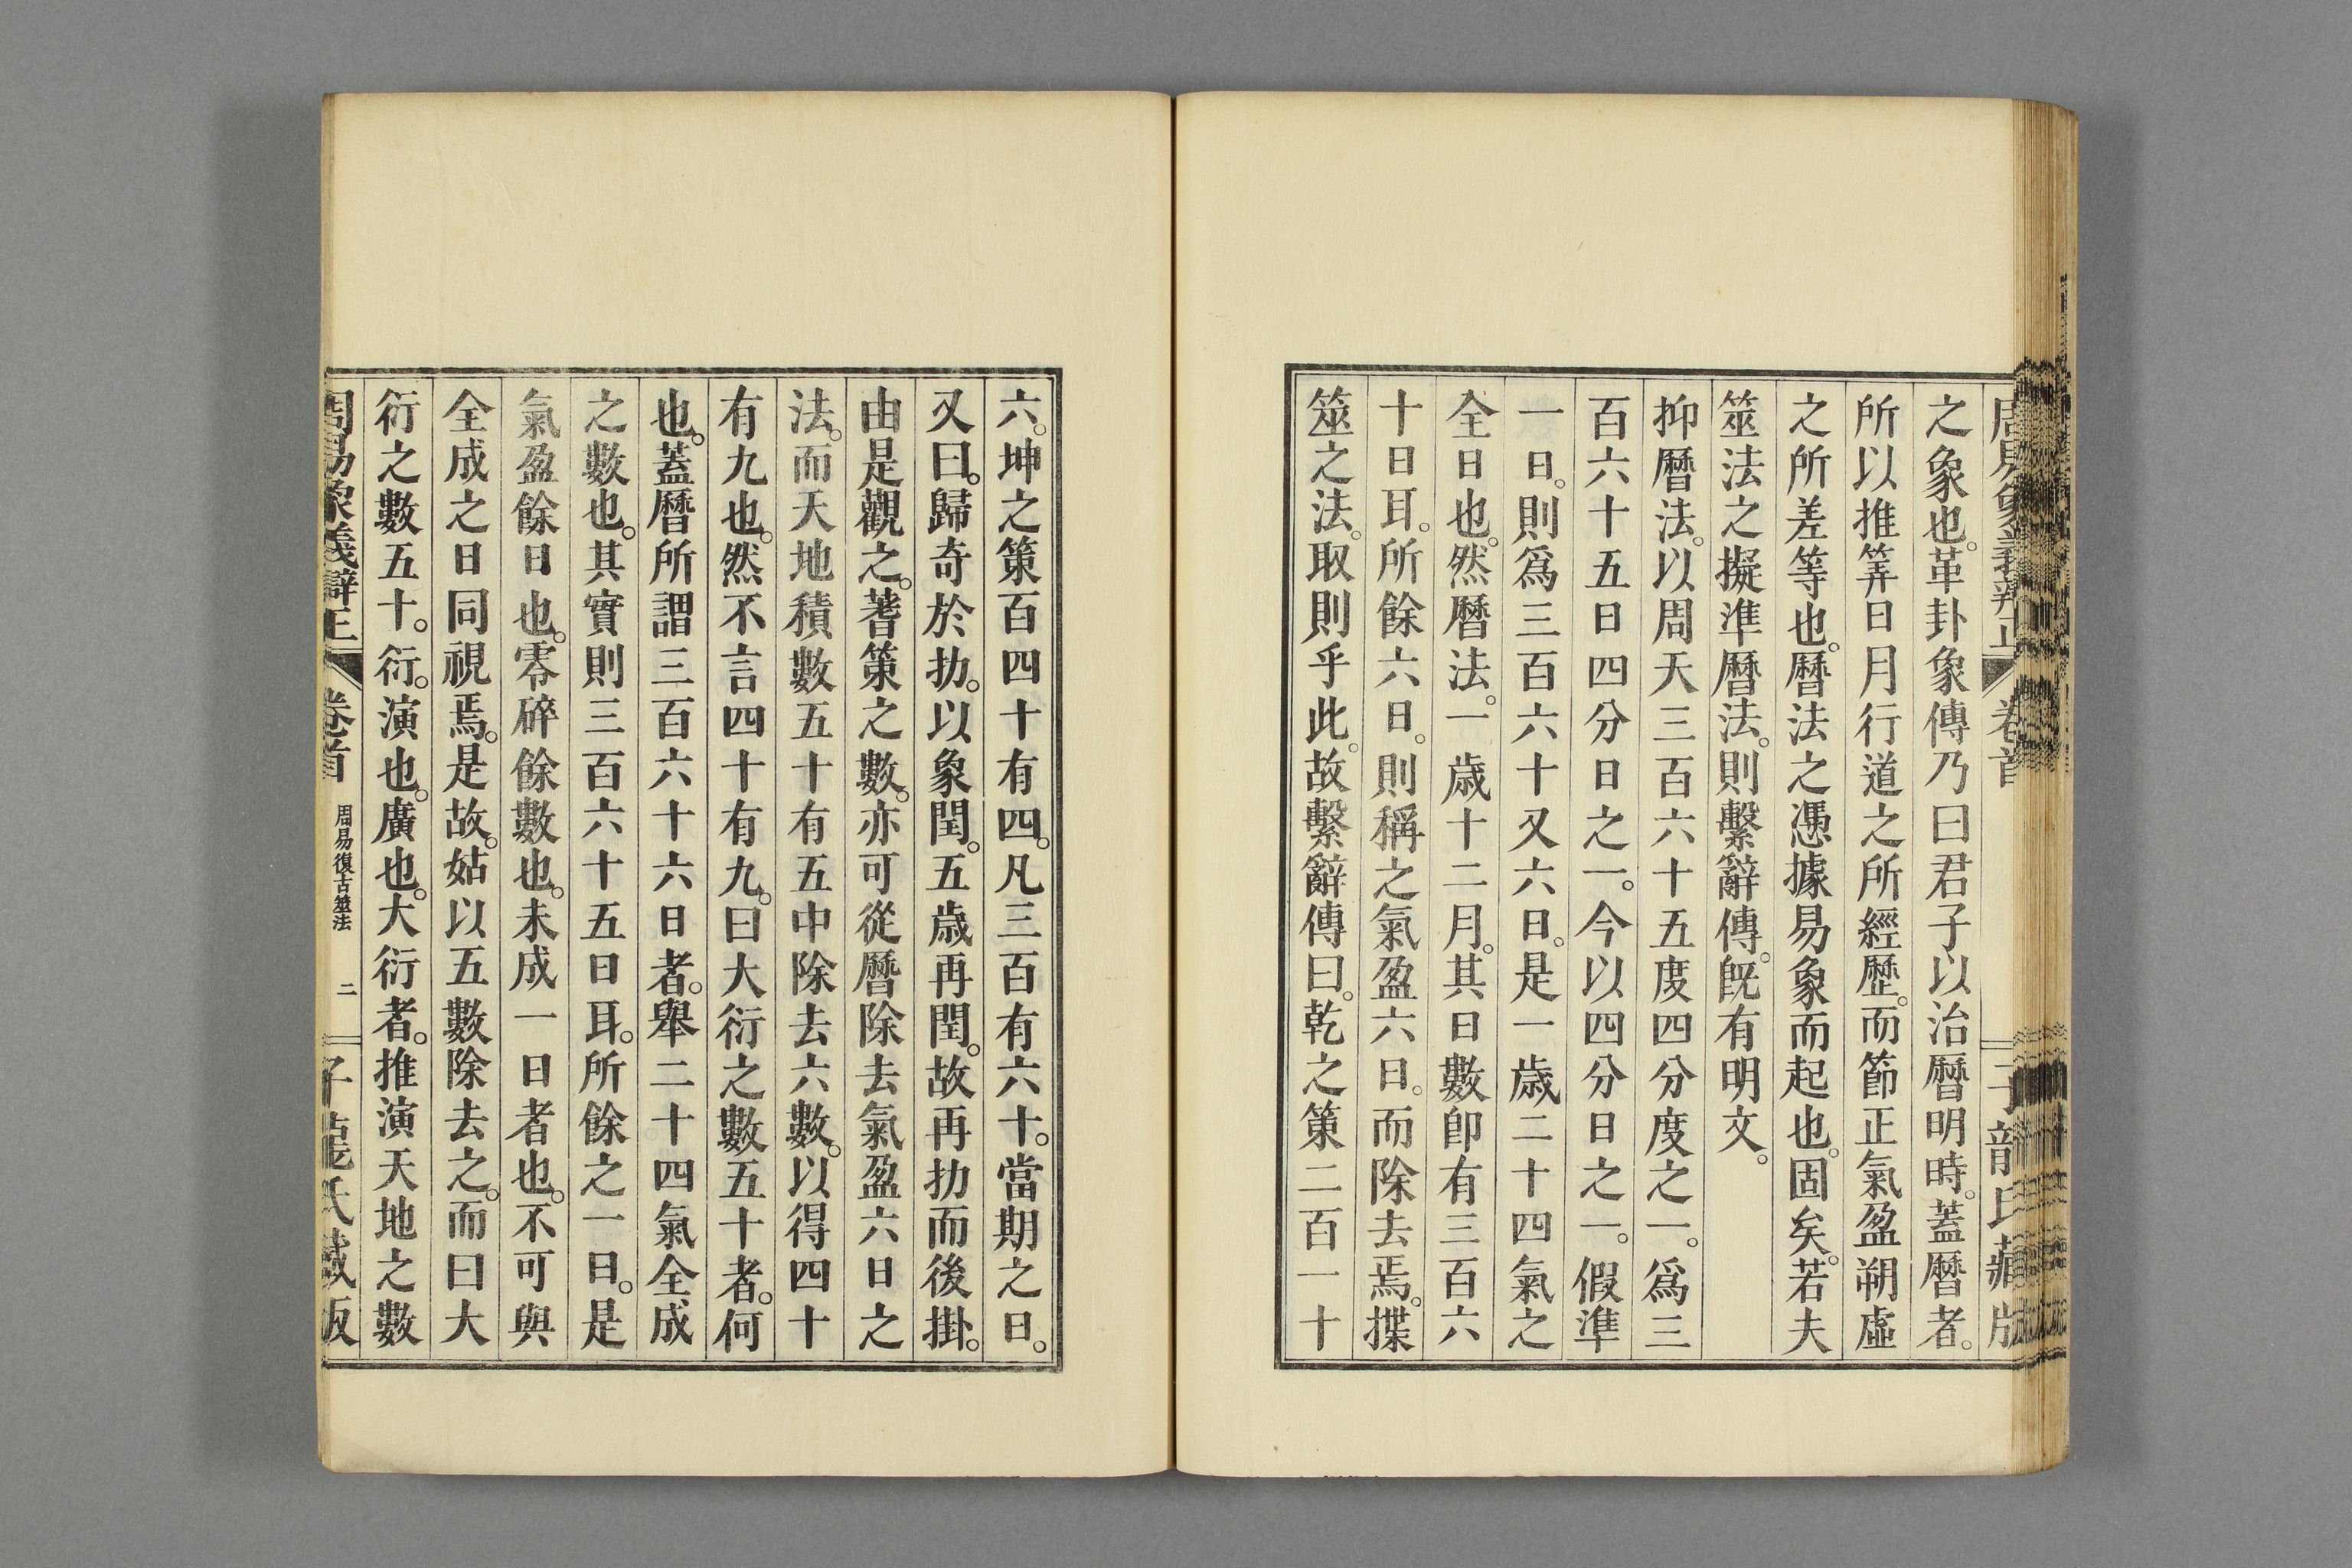 周易象義辯正 卷首 子龍氏藏版
之象也。革卦象傳乃曰君子以治曆明時。蓋曆者。
所以推筭日月行道之所經歷。而節正氣盈朔虛
之所差等也。曆法之憑據易象而起也。固矣。若夫
筮法之擬準曆法。則繫辭傳。既有明文。
抑曆法。以周天三百六十五度四分度之一。爲三
百六十五日四分日之一。今以四分日之一。假準
一日。則爲三百六十又六日。是一歲二十四氣之
全日也。然曆法。一歲十二月。其日數卽有三百六
十日耳。所餘六日。則稱之氣盈六日。而除去焉。揲
筮之法。取則乎此。故繫辭傳曰。乾之策二百一十
六。坤之策百四十有四。凡三百有六十。當期之日。
又曰。歸奇於扐。以象閏。五歲再閏。故再扐而後掛。
由是觀之。蓍策之數。亦可從曆除去氣盈六日之
法。而天地積數五十有五中除去六數。以得四十
有九也。然不言四十有九。曰大衍之數五十者。何
也。蓋曆所謂三百六十六日者。舉二十四氣全成
之數也。其實則三百六十五日耳。所餘之一日。是
氣盈餘日也。零碎餘數也。未成一日者也。不可與
全成之日同視焉。是故。姑以五數除去之。而曰大
衍之數五十。衍。演也。廣也。大衍者。推演天地之數
周易象義辯正 卷首 周易復古筮法 二 子龍氏藏版